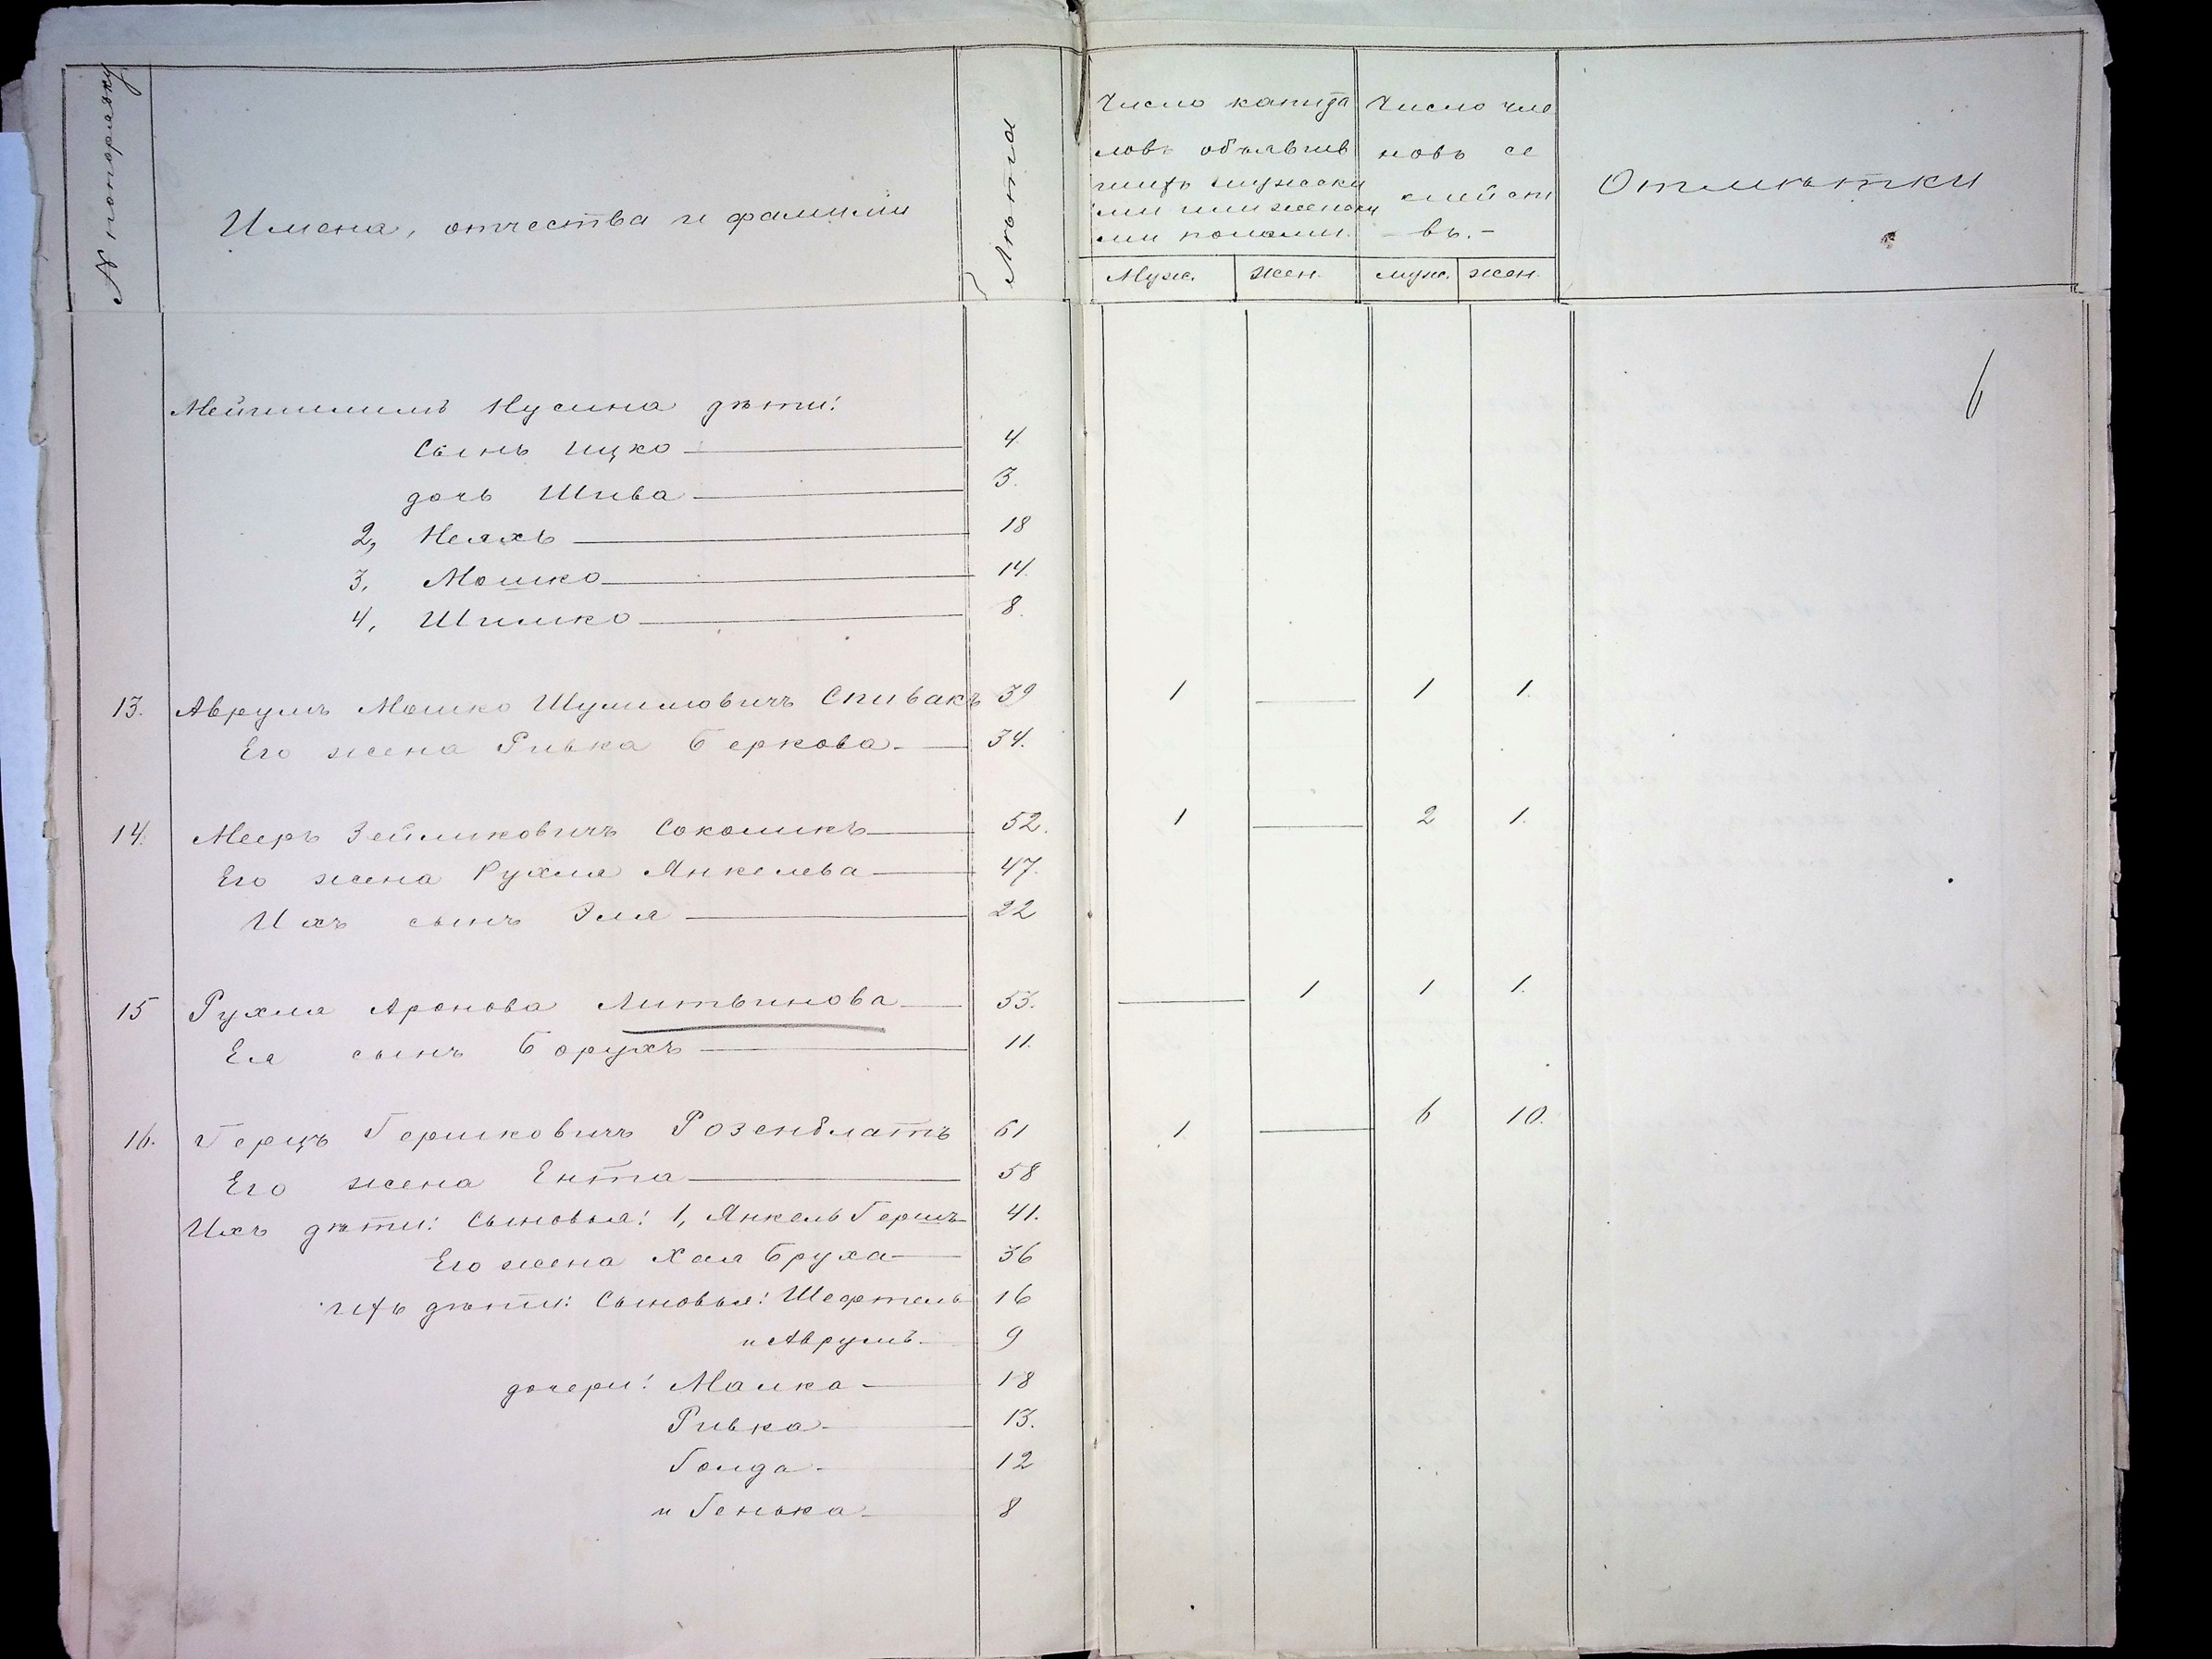 № по порядку
Имена, отчества и фамилии
Лѣта
Число капита
ловъ объявив
шихъ мужски
ми или женски
ми полами.
Число чле
новъ се
мейст
въ.-
Отмѣтки
Муж. жен. муж. жен.
6
Нусина дѣти:
Сынъ Ицко 4.
дочь Шива 3.
2, Неяхъ 18
3, Мошко 14.
4, Шимко 8.
13. Аврумъ Мошко Шулимовичъ Спивакъ 39 1 — 1 1.
Его жена Ривка Беркова 34.
14. Мееръ Зейликовичъ Соколикъ 52. 1 — 2 1.
Его жена Рухля Янкелева 47.
Ихъ сынъ Эля 22
15 Рухля Аронова Литвинова 53. — 1 1 1.
Ея сынъ Борухъ 11.
16. Герцъ Гершковичъ Розенблатъ 61 1. — 6 10.
Его жена Ента 58
Ихъ дѣти: Сыновья: 1, Янкель Гершъ 41.
Его жена Хая Бруха 36
ихъ дѣти: Сыновья: Шефтель 16
и Аврумъ 9
дочери: Малка 18
Ривка 13.
Голда 12
и Генька 8